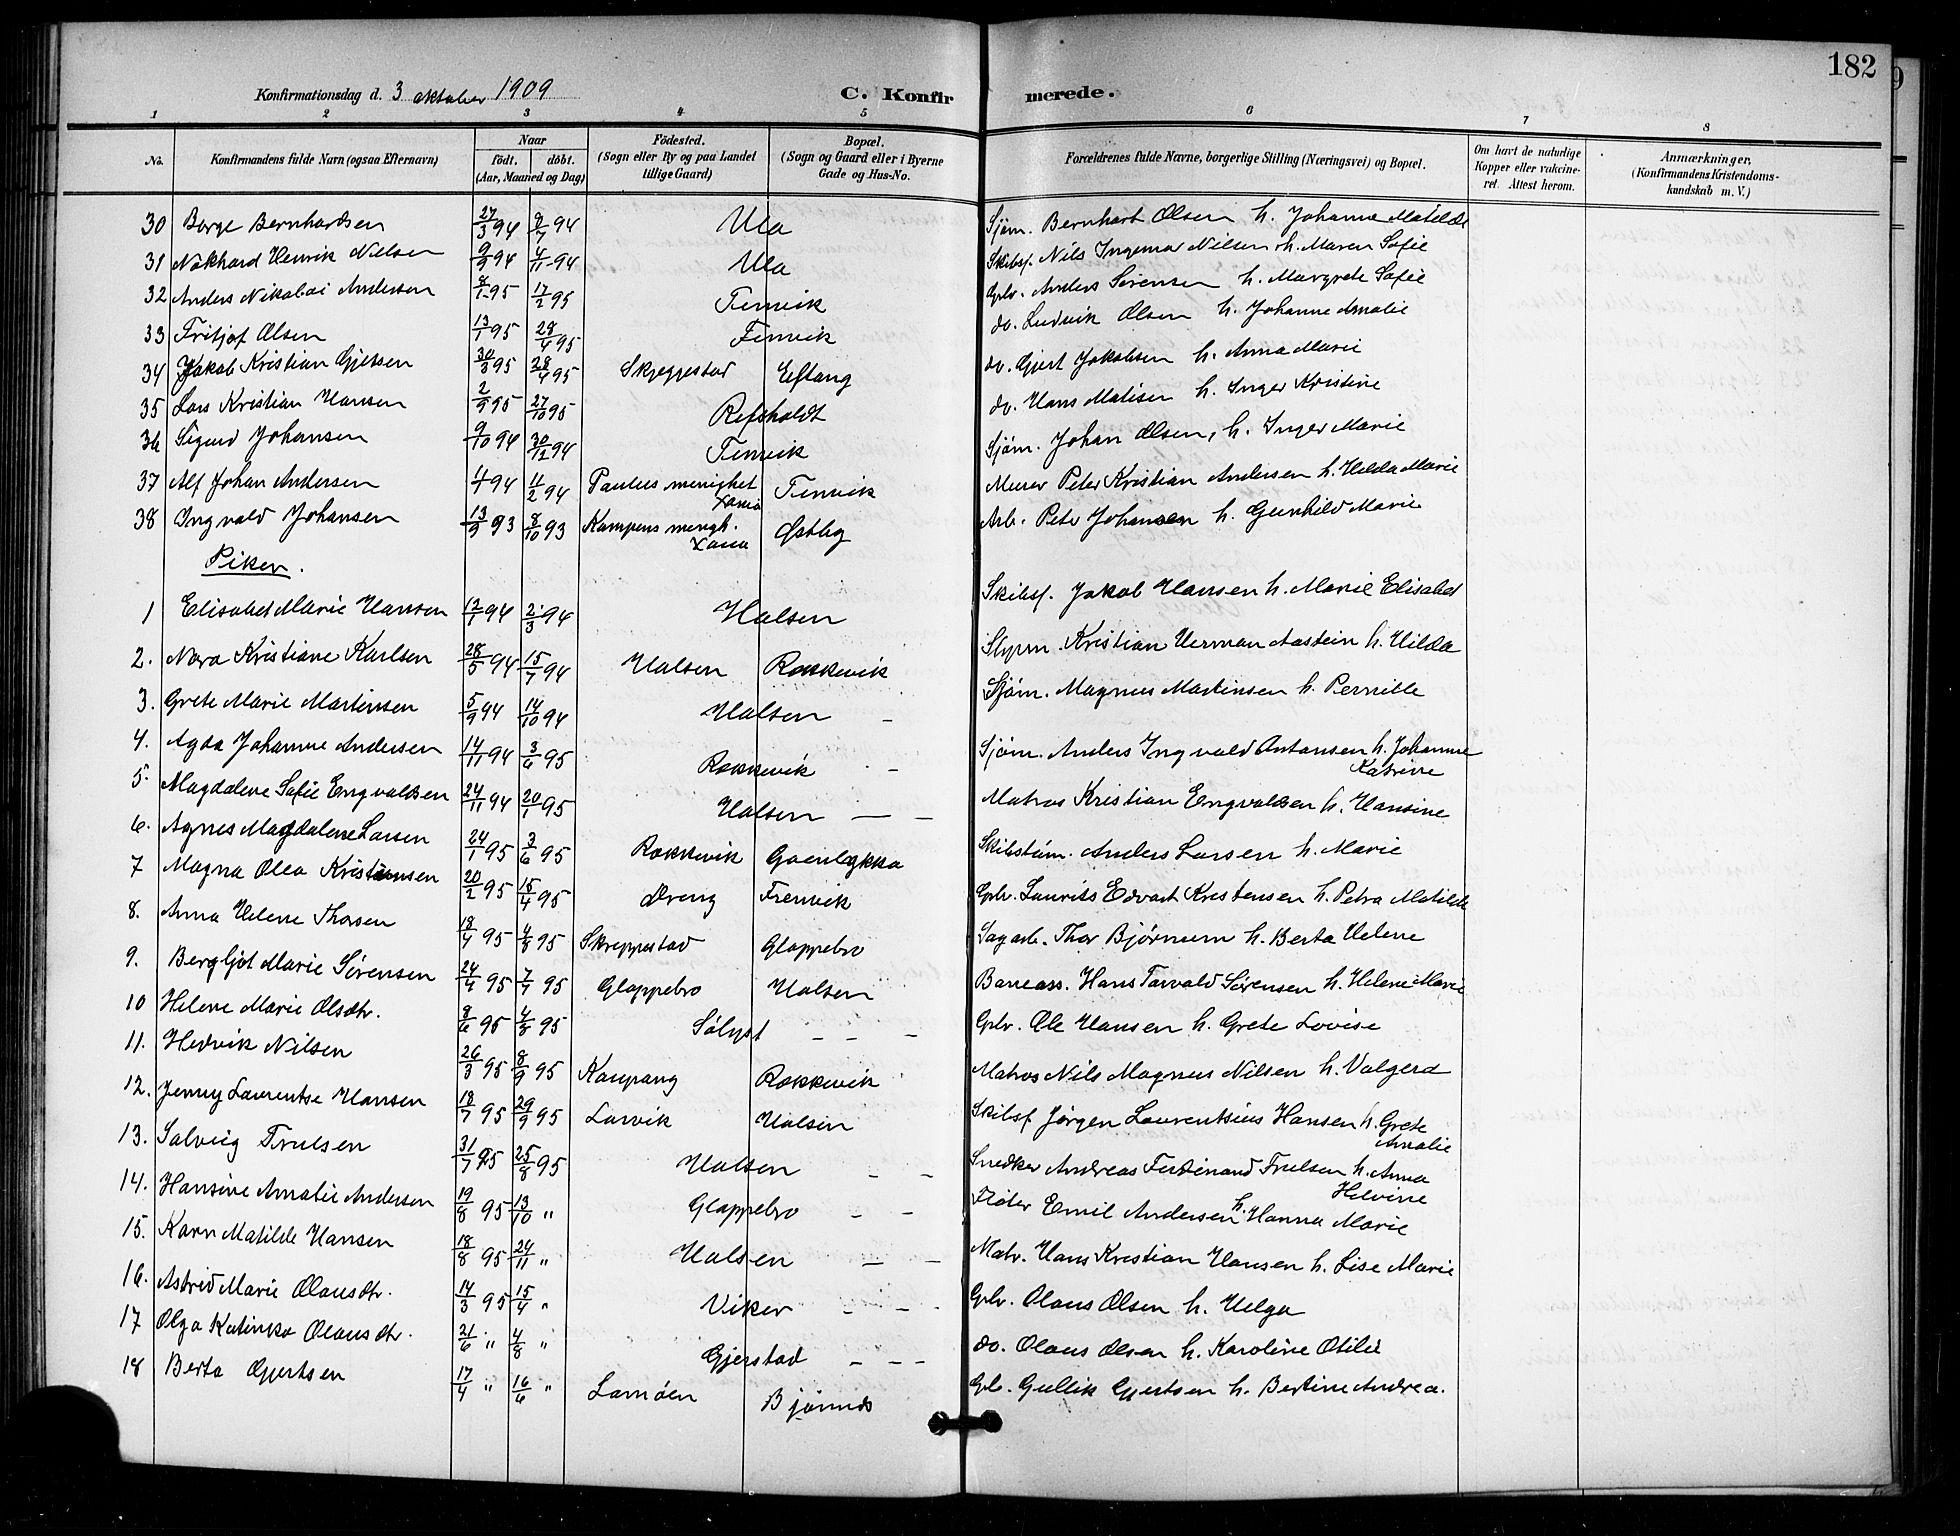 182
Konfirmationsdag d. 3 oktober 1909 C. Konfirmerede.
1 2 3 4 5 6 7 8
No. Konfirmandens fulde Navn (ogsaa Efternavn) Naar født. døbt. (Aar, Maaned og Dag) Fødested. (Sogn eller By og paa Landet tillige Gaard) Bopæl. (Sogn og Gaard eller i Byerne Gade og Hus-No. Forældrenes fulde Navne, borgerlige Stilling (Næringsvei) og Bopæl. Om havt de naturlige Kopper eller vakcineret. Attest herom. Anmærkninger, (Konfirmandens Kristendomskundskab m. V.)
30 Borge Bernhardsen 27/3 94 8/7 94 Ula Sjøm. Bernhart Olsen h. Johanne Matilde
31 Nökhard Henrik Nielsen 9/9 94 4/11 94 Ula Skibsf. Nils Ingemar Nilsen h. Maren Sofie
32 Anders Nikolai Andersen 8/1 95 17/2 95 Temvik Gbr. Anders Sørensen h. Margrete Sofie
33 Fritjof Olsen 13/1 95 28/4 95 Temvik do. Ludvik Olsen h. Johanne Amalie
34 Jakob Kristian Gjetsen 30/3 95 28/4 95 Skjeggestad Eftang do. Gjert Jakobsen h. Anna Marie
35 Lars Kristian Hansen 2/9 95 27/10 95 Refsholdt do. Hans Matisen h. Inger Kristine
36 Sigurd Johansen 9/10 94 30/12 94 Temvik Sjøm. Johan Olsen, h. Inger Marie
37 Alf Johan Andersen 4/1 94 11/2 94 Paulus menighet Xania Temvik Murer Peter Kristian Andersen h. Hilda Marie
38 Ingvald Johansen 13/9 93 8/10 93 Kampens mengh. Xania Østby Arb. Peter Johansen h. Gunhild Marie
Piker.
1 Elisabet Marie Hansen 12/1 94 2/3 94 Halsen Skibsf. Jakob Hansen h. Marie Elisabet
2. Nora Kristiane Karlsen 28/5 94 15/7 94 Halsen Rekkevik Styrm. Kristian Herman Aastein h. Hilda
3. Grete Marie Martinsen 5/9 94 14/10 94 Halsen - Sjøm. Magnus Martinsen h. Pernille
4. Agda Johanne Andersen 14/11 94 3/6 95 Rekkevik - Sjøm. Anders Ingvald Antonsen h. Johanne Katrine
5. Magdalene Sofie Engvaldsen 24/11 94 20/1 95 Halsen - - Matros Kristian Engvaldsen h. Hansine
6. Agnes Magdalene Larsen 24/1 95 3/6 95 Rekkevik Gønløkka Skibstøm. Anders Larsen h. Marie
7 Magna Olea Kristiansen 20/2 95 15/4 95 Øreng Fremvik Gbr. Laurits Edvart Kristensen h. Petra Matilde
8. Anna Helene Thorsen 18/4 95 4/8 95 Skreppestad Gloppebro Sagarb. Thor Bjørnum h. Berta Helene
9. Bergljot Marie Sørensen 24/4 95 7/7 95 Gloppebro Halsen Baneass. Hans Torvald Sørensen h. Helene Marie
10 Helene Marie Olsdtr. 8/6 95 4/8 95 Sölyst - - - Gbr. Ole Hansen h. Grete Lovise
11. Hedvik Nilsen 26/3 95 8/9 95 Kaupang Rekkevik Matros Nils Magnus Nilsen h. Valgerd
12. Jenny Laurentse Hansen 18/7 95 29/9 95 Larvik Halsen Skibsf. Jørgen Laurentsius Hansen h. Grete Amalie
13. Solveig Trulsen 31/7 95 25/8 95 Halsen - - Snedker Andreas Ferdinand Trulsen h. Anna Helvine
14. Hansine Amalie Andersen 19/8 95 13/10 " Gloppebro - - Fløter Emil Andersen h. Hanna Marie
15. Karn Matilde Hansen 18/8 95 24/11 " Halsen - - Matr. Hans Kristian Hansen h. Lise Marie
16. Astrid Marie Olausdtr. 14/3 95 15/4 " Viker - - - Gbr. Olaus Olsen h. Helga
17 Olga Katinka Olausdtr. 21/6 " 4/8 " Gjerstad - - - do. Olaus Olsen h. Karoline Otilie
18 Berta Gjertsen 17/4 " 16/6 " Lamøen Bjønnes Gb. Gullik Gjertsen h. Bertine Andrea.